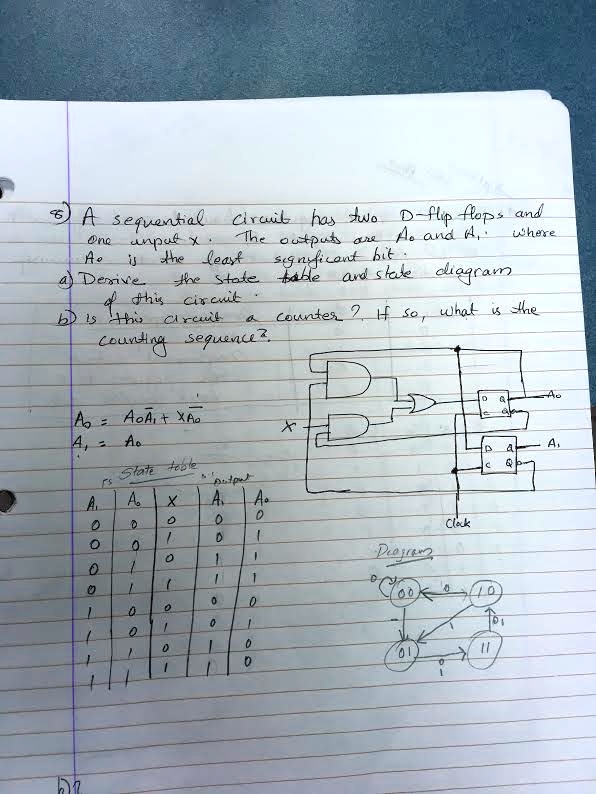 8) A sequential circuit has two D-flip flops and
one input x. The outputs are A₀ and A₁. where
A₀ is the least significant bit.
a) Derive the state table and state diagram
of this circuit.
b) is this circuit a counter? If so, what is the
counting sequence?.
A₀ = A₀Ā₁ + XĀ₀
A₁ = A₀
X
D Q A₀
C Q
D Q A₁
C Q
Clock
State table
PS Output
A₁ A₀ X A₁ A₀
0 0 0 0 0
0 0 1 0 1
0 1 0 1 1
0 1 1 1 1
1 0 0 0 0
1 0 1 0 1
1 1 0 1 0
1 1 1 1 0
Diagram
0 00 0 10
1 1 0,1
01 0 11
1
b)